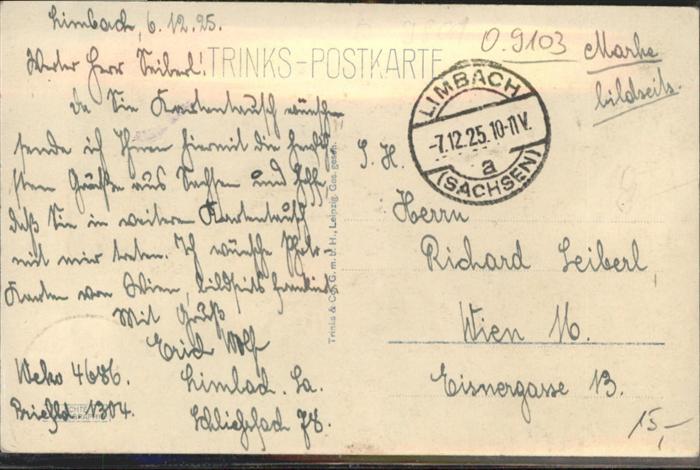 Limbach, 6.12.25.
Werter Herr Seiberl!
TRINKS-POSTKARTE
da Sie Kartentausch wünschen
sende ich Ihnen hiermit die
Grüße aus Sachsen und hoffe,
daß Sie in weiteren Kartentausch
mit mir treten. Ich wünsche
Karten von Wien, bildseits frankiert.
Mit Gruß
Erich Wolf
Limbach. Sa.
Schließfach 78.
Weko 4686.
1304.
Trinks & Co. G. m. b. H., Leipzig. Ges. gesch.
0.9103
Marke
bildseits.
LIMBACH
-7.12.25.10-11V.
a
(SACHSEN)
S. H.
Herrn
Richard Seiberl
Wien 16.
Eisnergasse 13.
15,-